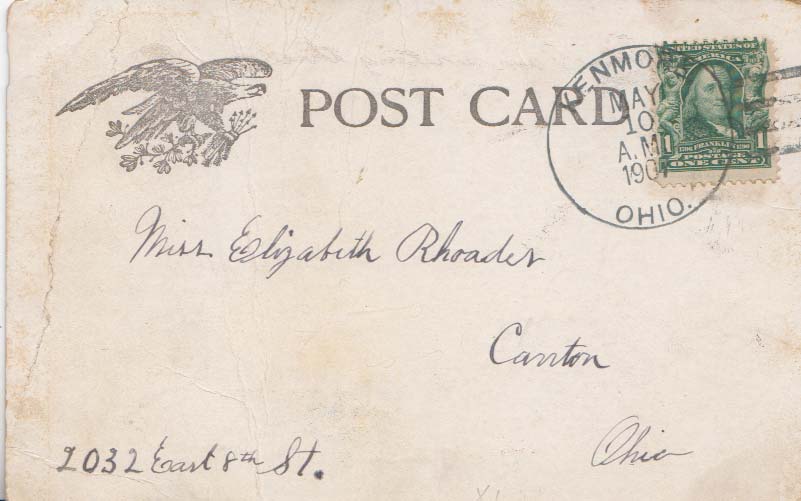 POST CARD
KENMORE
MAY
10
A.M.
1907
OHIO.
UNITED STATES OF
AMERICA
1 1
FRANKLIN
POSTAGE
ONE CENT
Miss Elizabeth Rhoades
Canton
Ohio
2032 East 8th St.